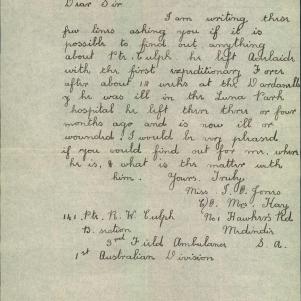 Dear Sir
I am writing these
few lines asking you if it is
possible to find out anything
about Pte. Culph he left Adelaide
with the first Expeditionary Force
after about 12 weeks at the Dardanelles
he was ill in the Luna Park
hospital he left there three or four
months ago and is now ill or
wounded. I would be very pleased
if you could find out for me, where
he is, & what is the matter with
him. Yours Truly
Miss Jones
C/o. Mrs. Kay
141. Pte. R. W. Culph No 1 Hawkers Rd
B. section Medindie
3rd Field Ambulance S. A.
1st Australian Division